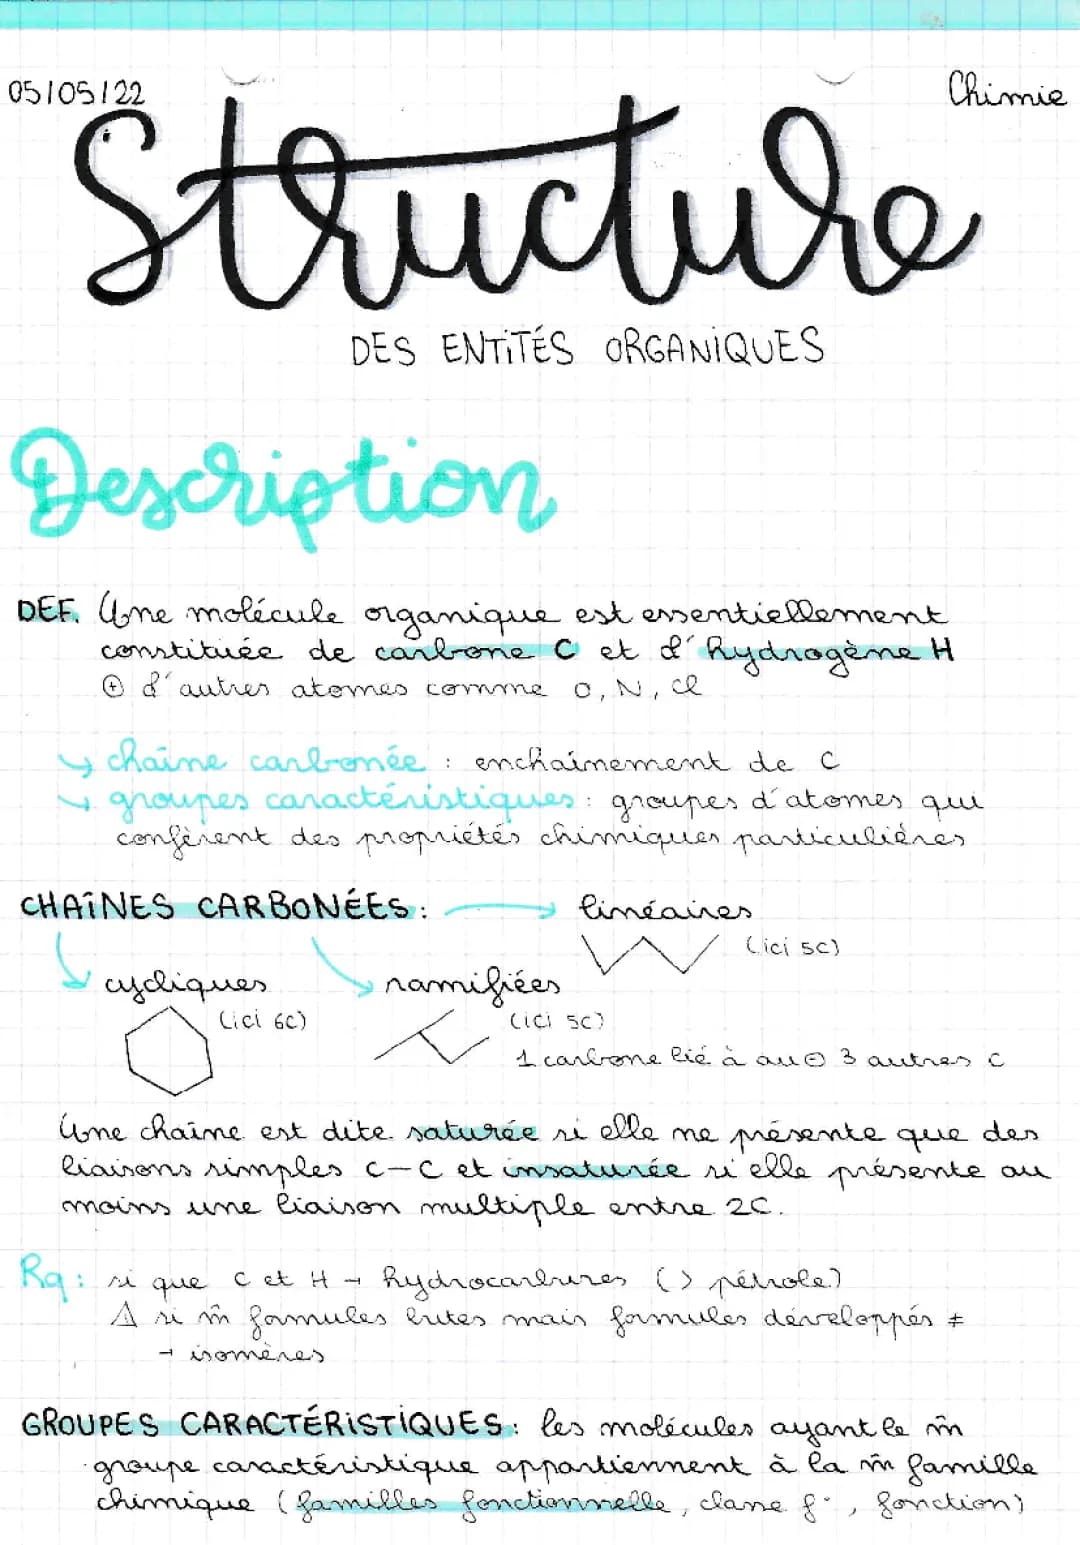 05/05/22
Chimie
Structure
DES ENTITÉS ORGANIQUES
Description
DEF. Une molécule organique est essentiellement
constituée de carbone C et d'hydrogène H
⊕ d'autres atomes comme O, N, Cl
↳ chaîne carbonée : enchaînement de C
↳ groupes caractéristiques : groupes d'atomes qui
confèrent des propriétés chimiques particulières
CHAÎNES CARBONÉES : → linéaires
(ici 5C)
cycliques
ramifiées
(ici 6C)
(ici 5C)
1 carbone lié à au ⊖ 3 autres C
Une chaîne est dite saturée si elle ne présente que des
liaisons simples C-C et insaturée si elle présente au
moins une liaison multiple entre 2C.
Rq : si que C et H → hydrocarbures (> pétrole)
⚠ si m̂ formules brutes mais formules développés ≠
→ isomères
GROUPES CARACTÉRISTIQUES : les molécules ayant le m̂
groupe caractéristique appartiennent à la m̂ famille
chimique (familles fonctionnelle, classe f°, fonction)